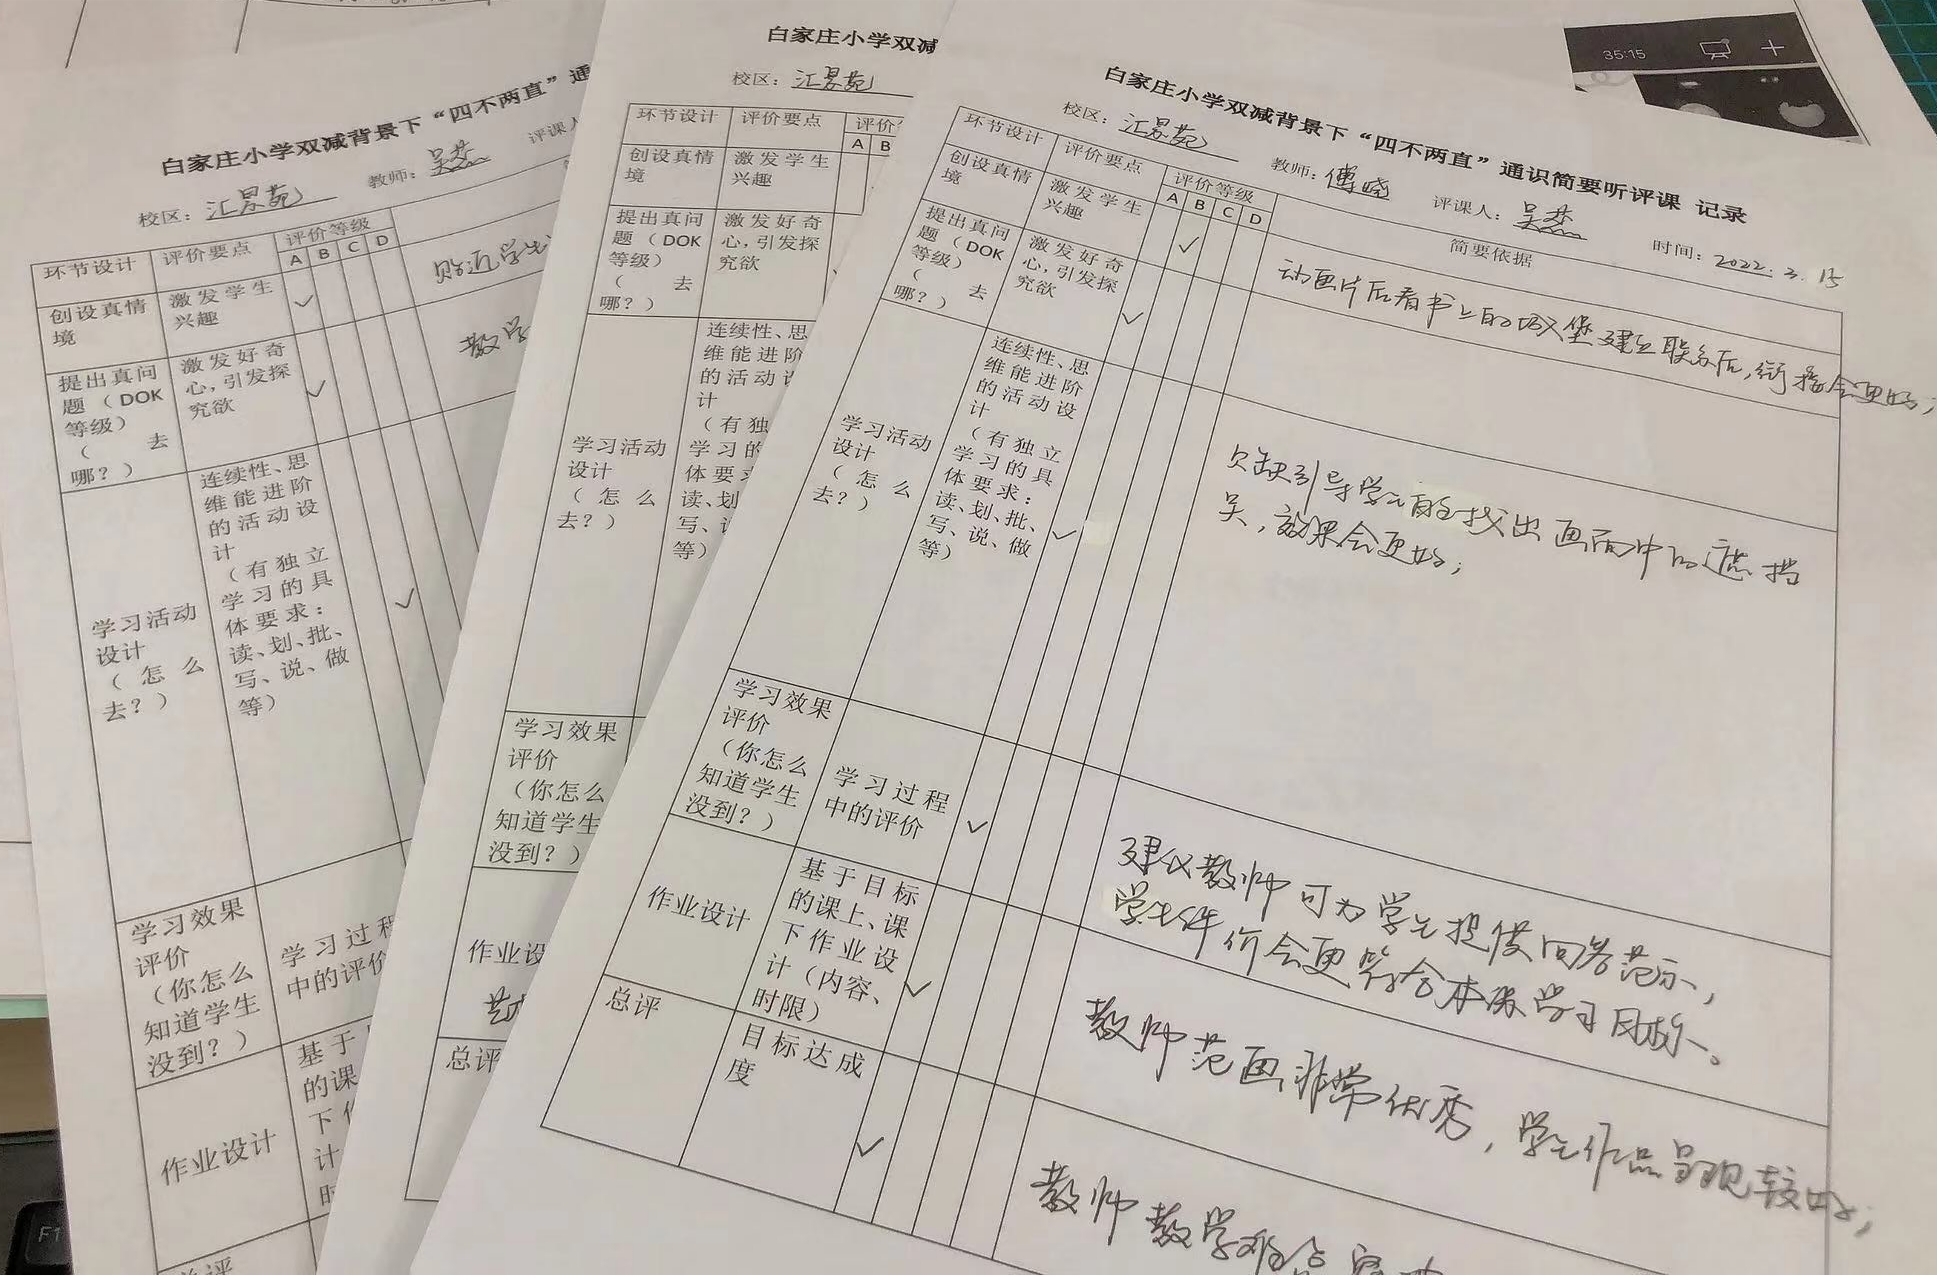 白家庄小学双减背景下“四不两直”通
校区：汇景苑 教师：吴 评课人
环节设计 评价要点 评价等级
A B C D
创设真情
境
激发学生
兴趣
贴近学生
提出真问
题（DOK
等级）
（去
哪？）
激发好奇
心，引发探
究欲
教学
学习活动
设计
（怎么
去？）
连续性、思
维能进阶
的活动设
计
（有独立
学习的具
体要求：
读、划、批、
写、说、做
等）
学习效果
评价
（你怎么
知道学生
没到？）
学习过程
中的评价
作业设计
基于
的课
下作
计
时
总评
白家庄小学双减
校区：汇景苑
环节设计 评价要点 评价
A B
创设真情
境
激发学生
兴趣
提出真问
题（DOK
等级）
（去
哪？）
激发好奇
心，引发探
究欲
学习活动
设计
（怎么
去？）
连续性、思
维能进阶
的活动设
计
（有独
学习的
体要求
读、划
写、
等）
学习效果
评价
（你怎么
知道学生
没到？）
作业设
总评
35:15
白家庄小学双减背景下“四不两直”通识简要听评课 记录
校区：汇景苑 教师：傅晓 评课人：吴 时间：2022.3.15
环节设计 评价要点 评价等级 简要依据
A B C D
创设真情
境
激发学生
兴趣
动画片后看书上的城堡建立联系后，衔接会更好；
提出真问
题（DOK
等级）
（去
哪？）
激发好奇
心，引发探
究欲
学习活动
设计
（怎么
去？）
连续性、思
维能进阶
的活动设
计
（有独立
学习的具
体要求：
读、划、批、
写、说、做
等）
欠缺引导学生自主找出画面中的遮挡
关，效果会更好；
学习效果
评价
（你怎么
知道学生
没到？）
学习过程
中的评价
建议教师可为学生提供问答范示，
学生评价会更符合本课学习目标。
作业设计
基于目标
的课上、课
下作业设
计（内容、
时限）
教师范画非常优秀，学生作品呈现较好；
总评
目标达成
度
教师教学